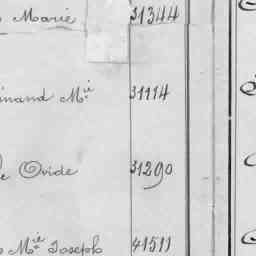 Marie 31344
inand M.ie 31114
e Ovide 31290
M.ie Joseph 41511